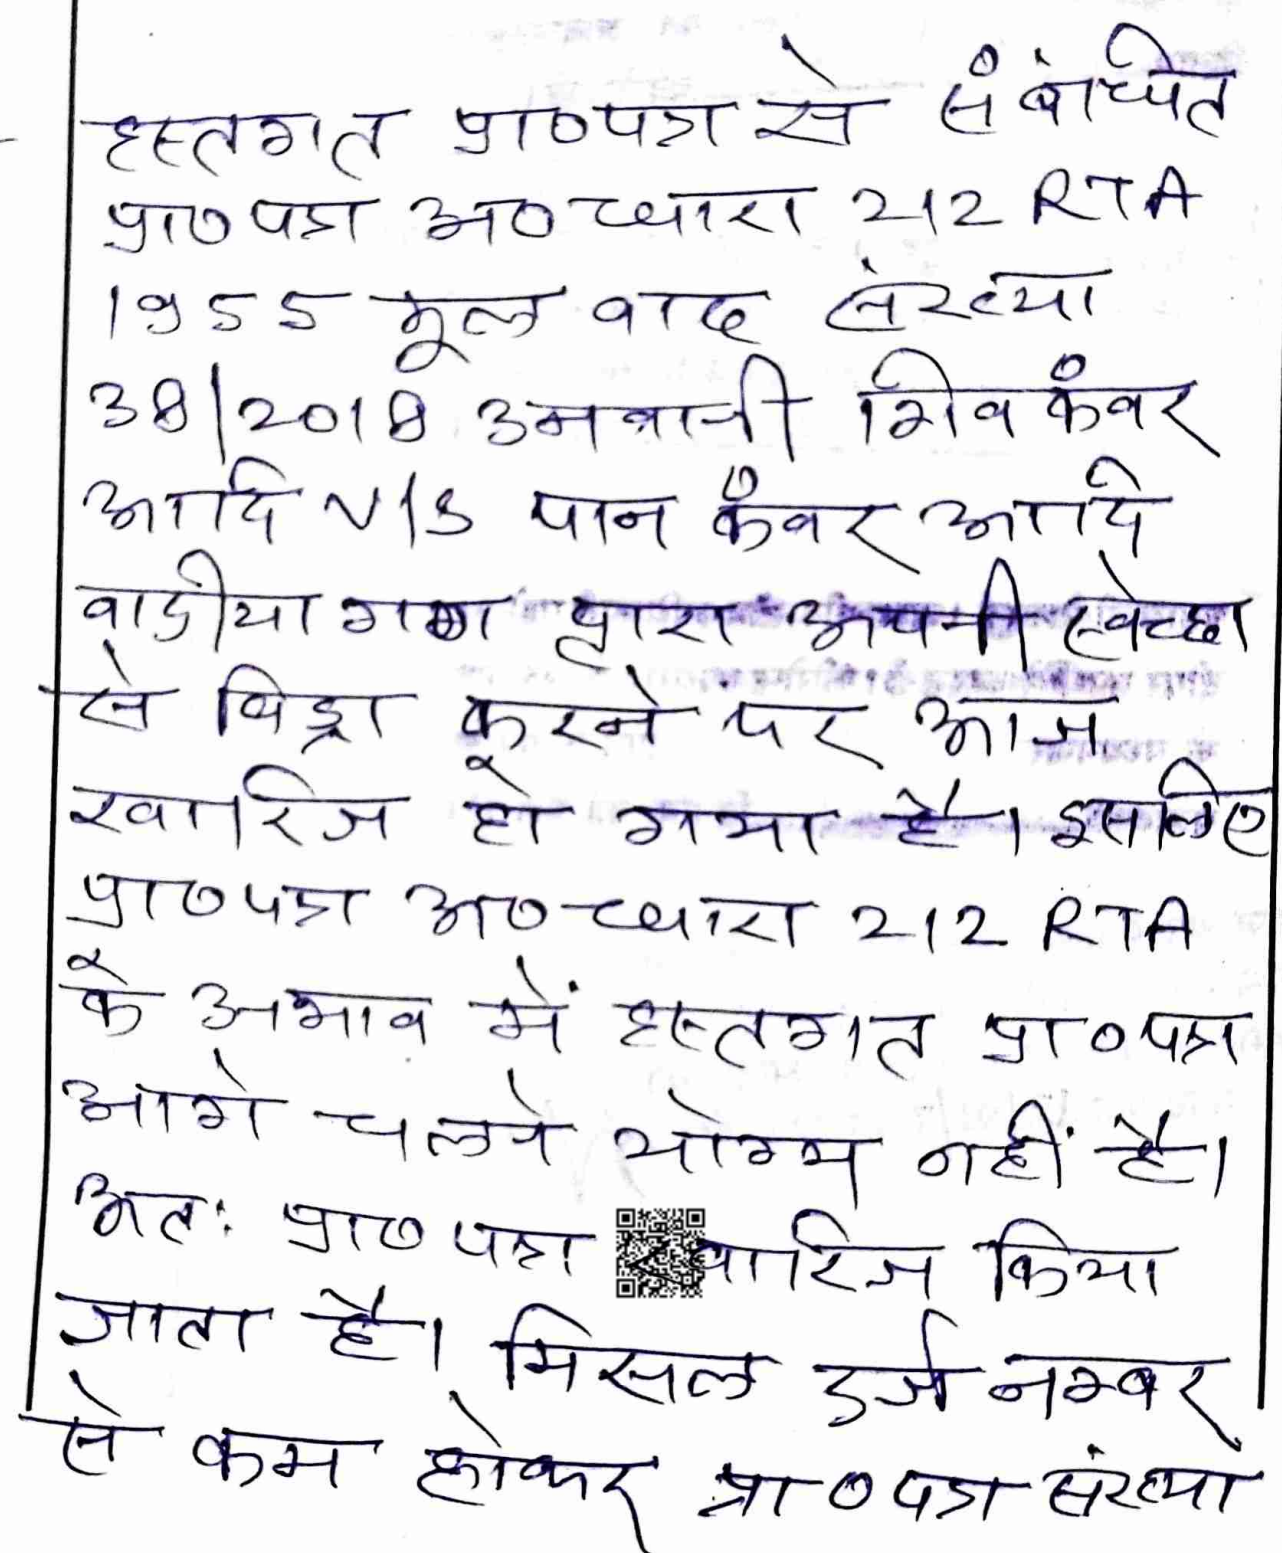 हस्तगत प्रा०पत्र से संबंधित
प्रा०पत्र अ० धारा 212 RTA
1955 मूल वाद संख्या
38/2018 उनवानी शिव कंवर
आदि V/S पान कँवर आदि
वादीया गण द्वारा अपनी स्वेच्छा
से विड्रा करने पर आज
खारिज हो गया है। इसलिए
प्रा०पत्र अ० धारा 212 RTA
के अभाव में हस्तगत प्रा०पत्र
आगे चलने योग्य नहीं है।
अतः प्रा० पत्र खारिज किया
जाता है। मिसल दर्ज नम्बर
से कम होकर प्रा०पत्र संख्या